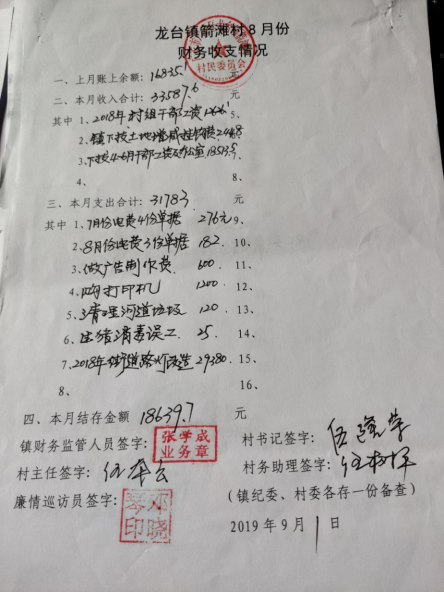 龙台镇箭滩村8月份
财务收支情况
村民委员会
一、上月账上余额:16835.1元
二、本月收入合计:33587.6元
其中 1、2018年村组干部工资 5、
2、镇下拨土地增减挂钩费2448 6、
3、下拨4-6月干部工资及办公室18513.5
4、 8、
三、本月支出合计:31783元
其中 1、7月份电费4份单据 276元 9、
2、8月份电费3份单据 182. 10、
3、做广告制作费 600. 11、
4、购打印机 1200. 12、
5、清理河道垃圾 120. 13、
6、生猪消毒误工 25. 14、
7、2018年街道路灯改造 29380. 15、
8、 16、
四、本月结存金额 18639.7元
镇财务监管人员签字: 张学成业务章 村书记签字:伍隆华
村主任签字: 村务助理签字:
廉情巡访员签字:邓晓琴印 (镇纪委、村委各存一份备查)
2019年9月1日